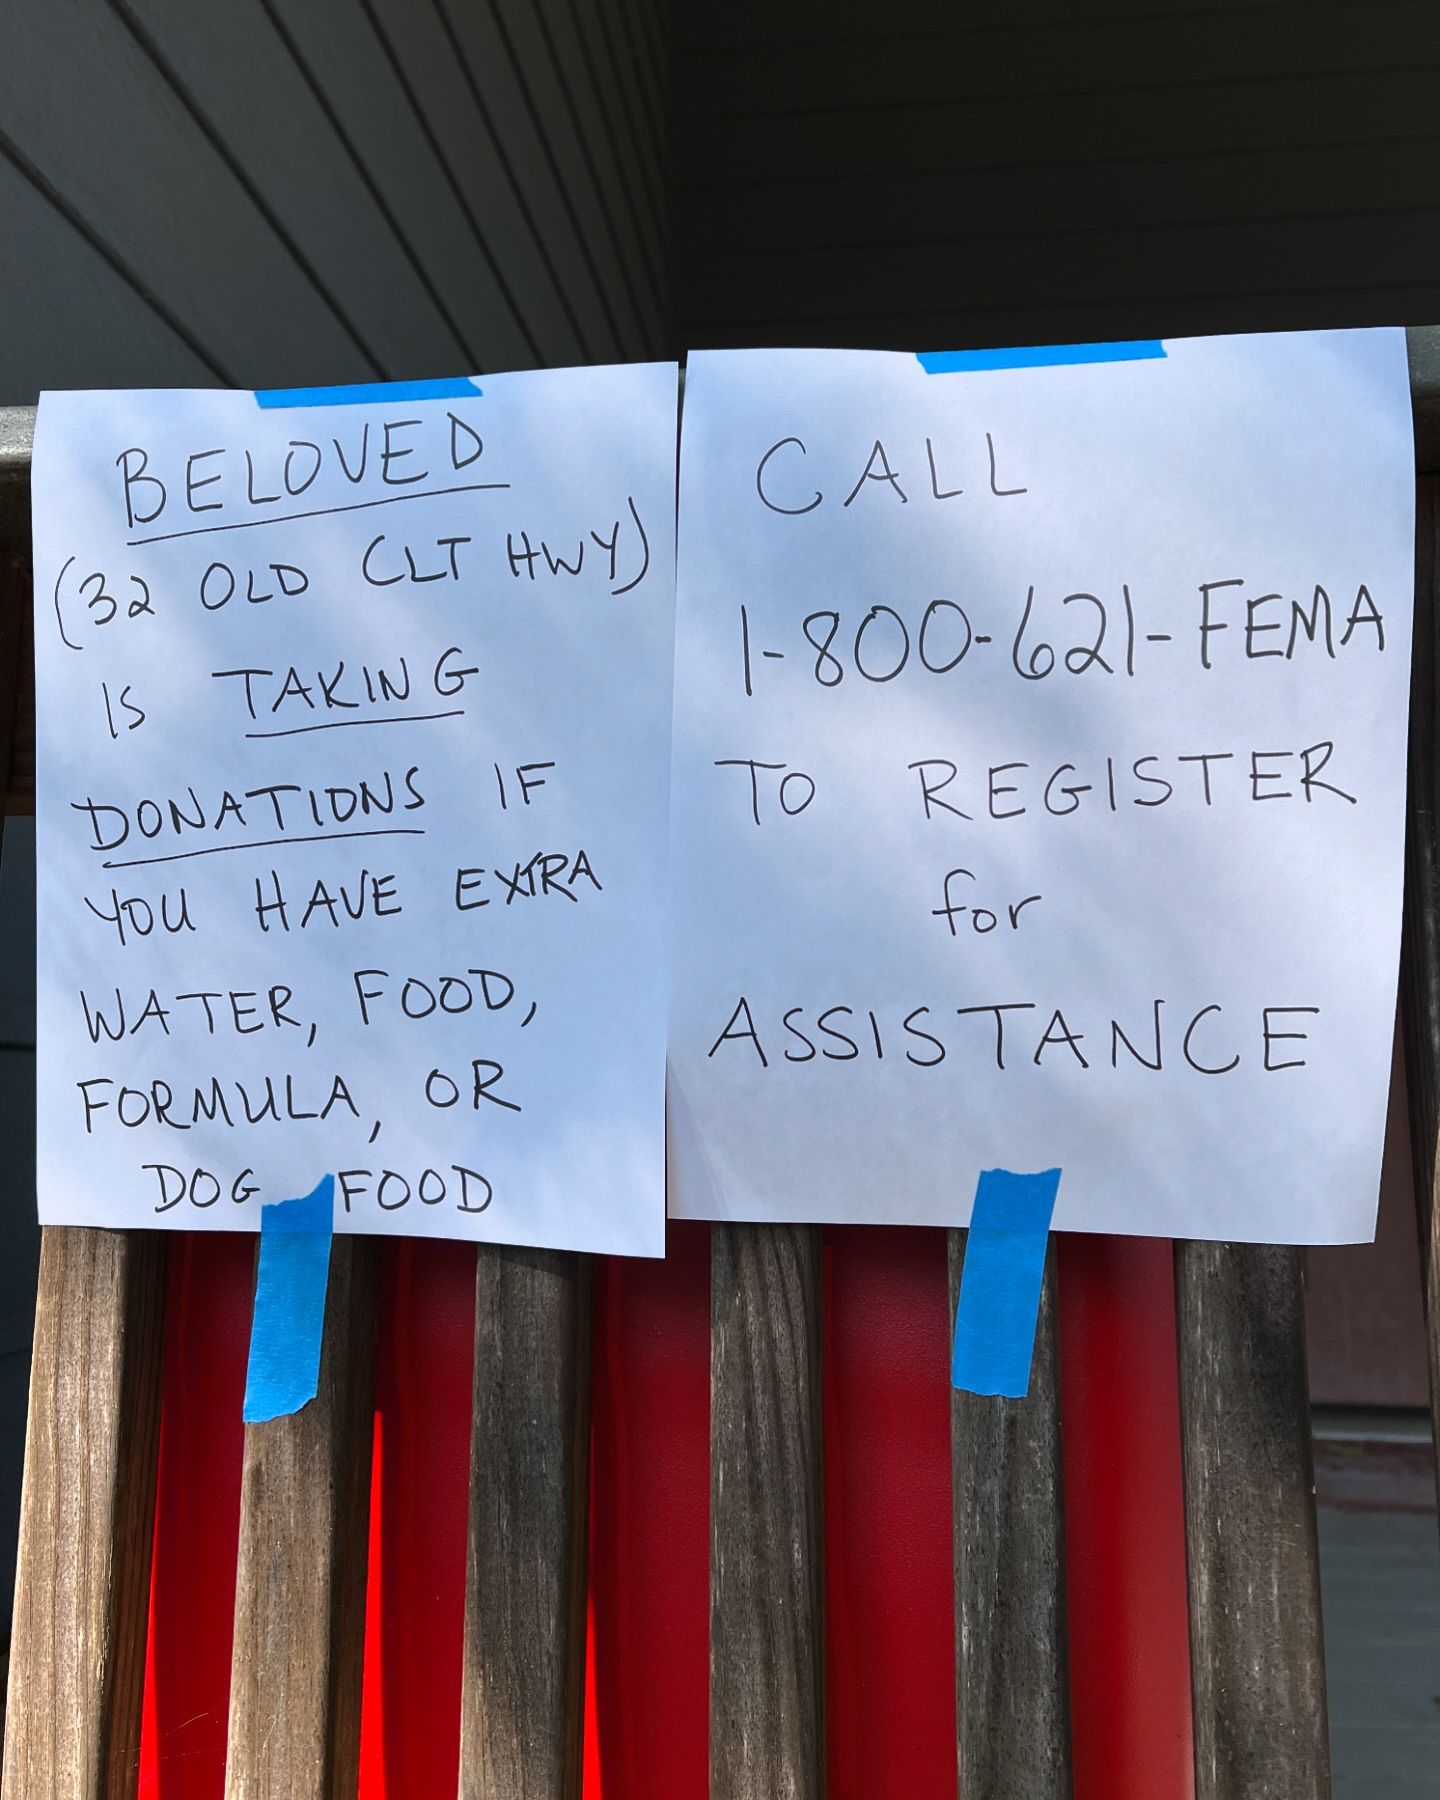 BELOVED
(32 OLD CLT HWY)
IS TAKING
DONATIONS IF
YOU HAVE EXTRA
WATER, FOOD,
FORMULA, OR
DOG FOOD
CALL
1-800-621-FEMA
TO REGISTER
for
ASSISTANCE